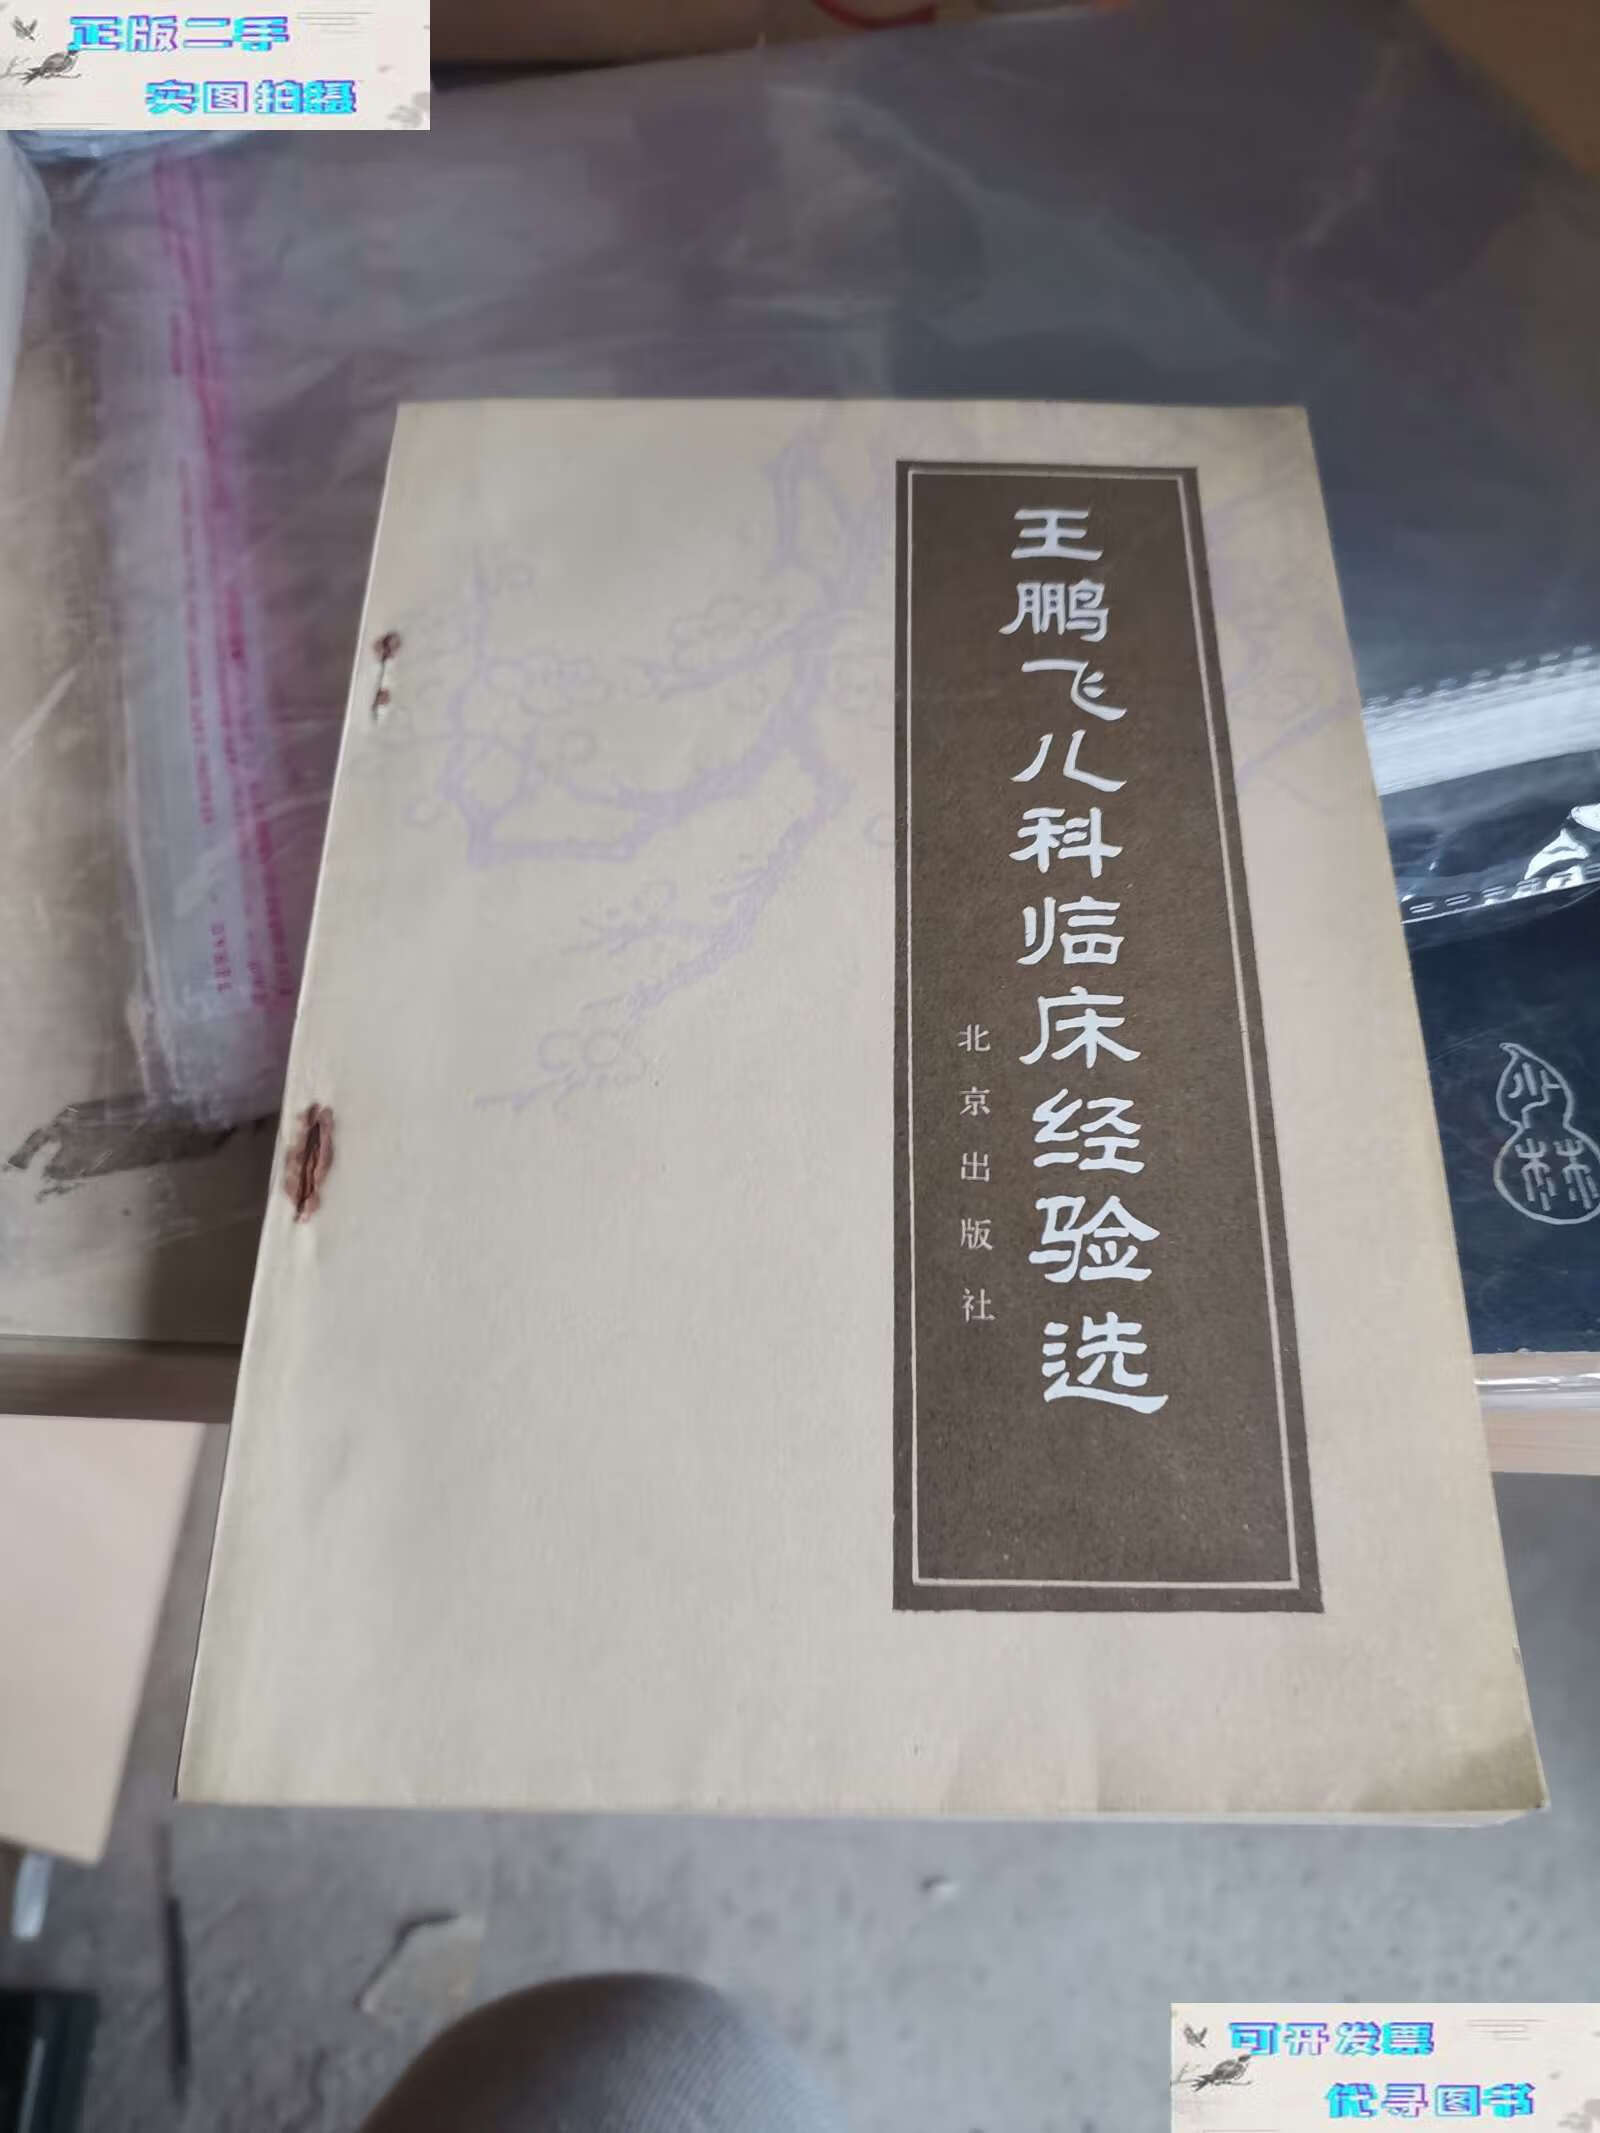 正版二手
实图拍摄
王鹏飞儿科临床经验选
北京出版社
少林
可开发票
代寻图书